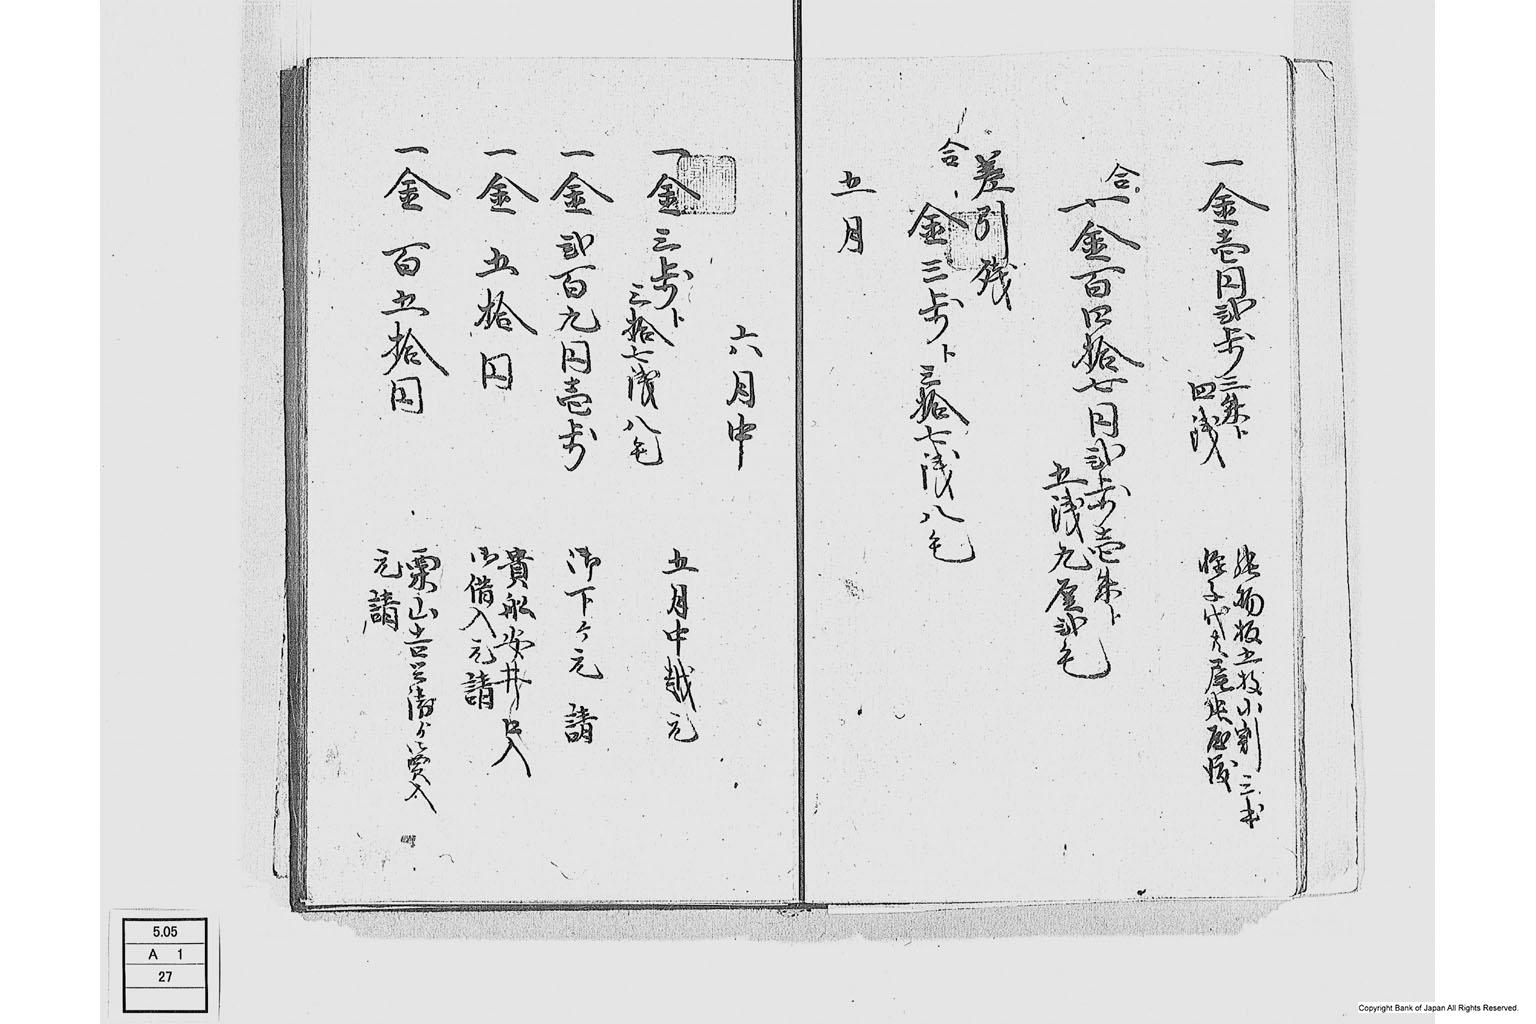 一金壱円弐歩三朱ト
四浅
張物板五枚小割三
合
一金百四拾七円弐歩壱朱ト
五浅九厘弐毛
差引残
合
金三歩ト三拾七浅八毛
五月
六月中
一金三歩ト
三拾七浅八毛
五月中越元
一金弐百九円壱歩
御下ケ元請
一金五拾円
貴船安井口入
御借入元請
一金百五拾円
栗山吉兵衛ゟ買入
元請
5.05
A 1
27
Copyright Bank of Japan All Rights Reserved.